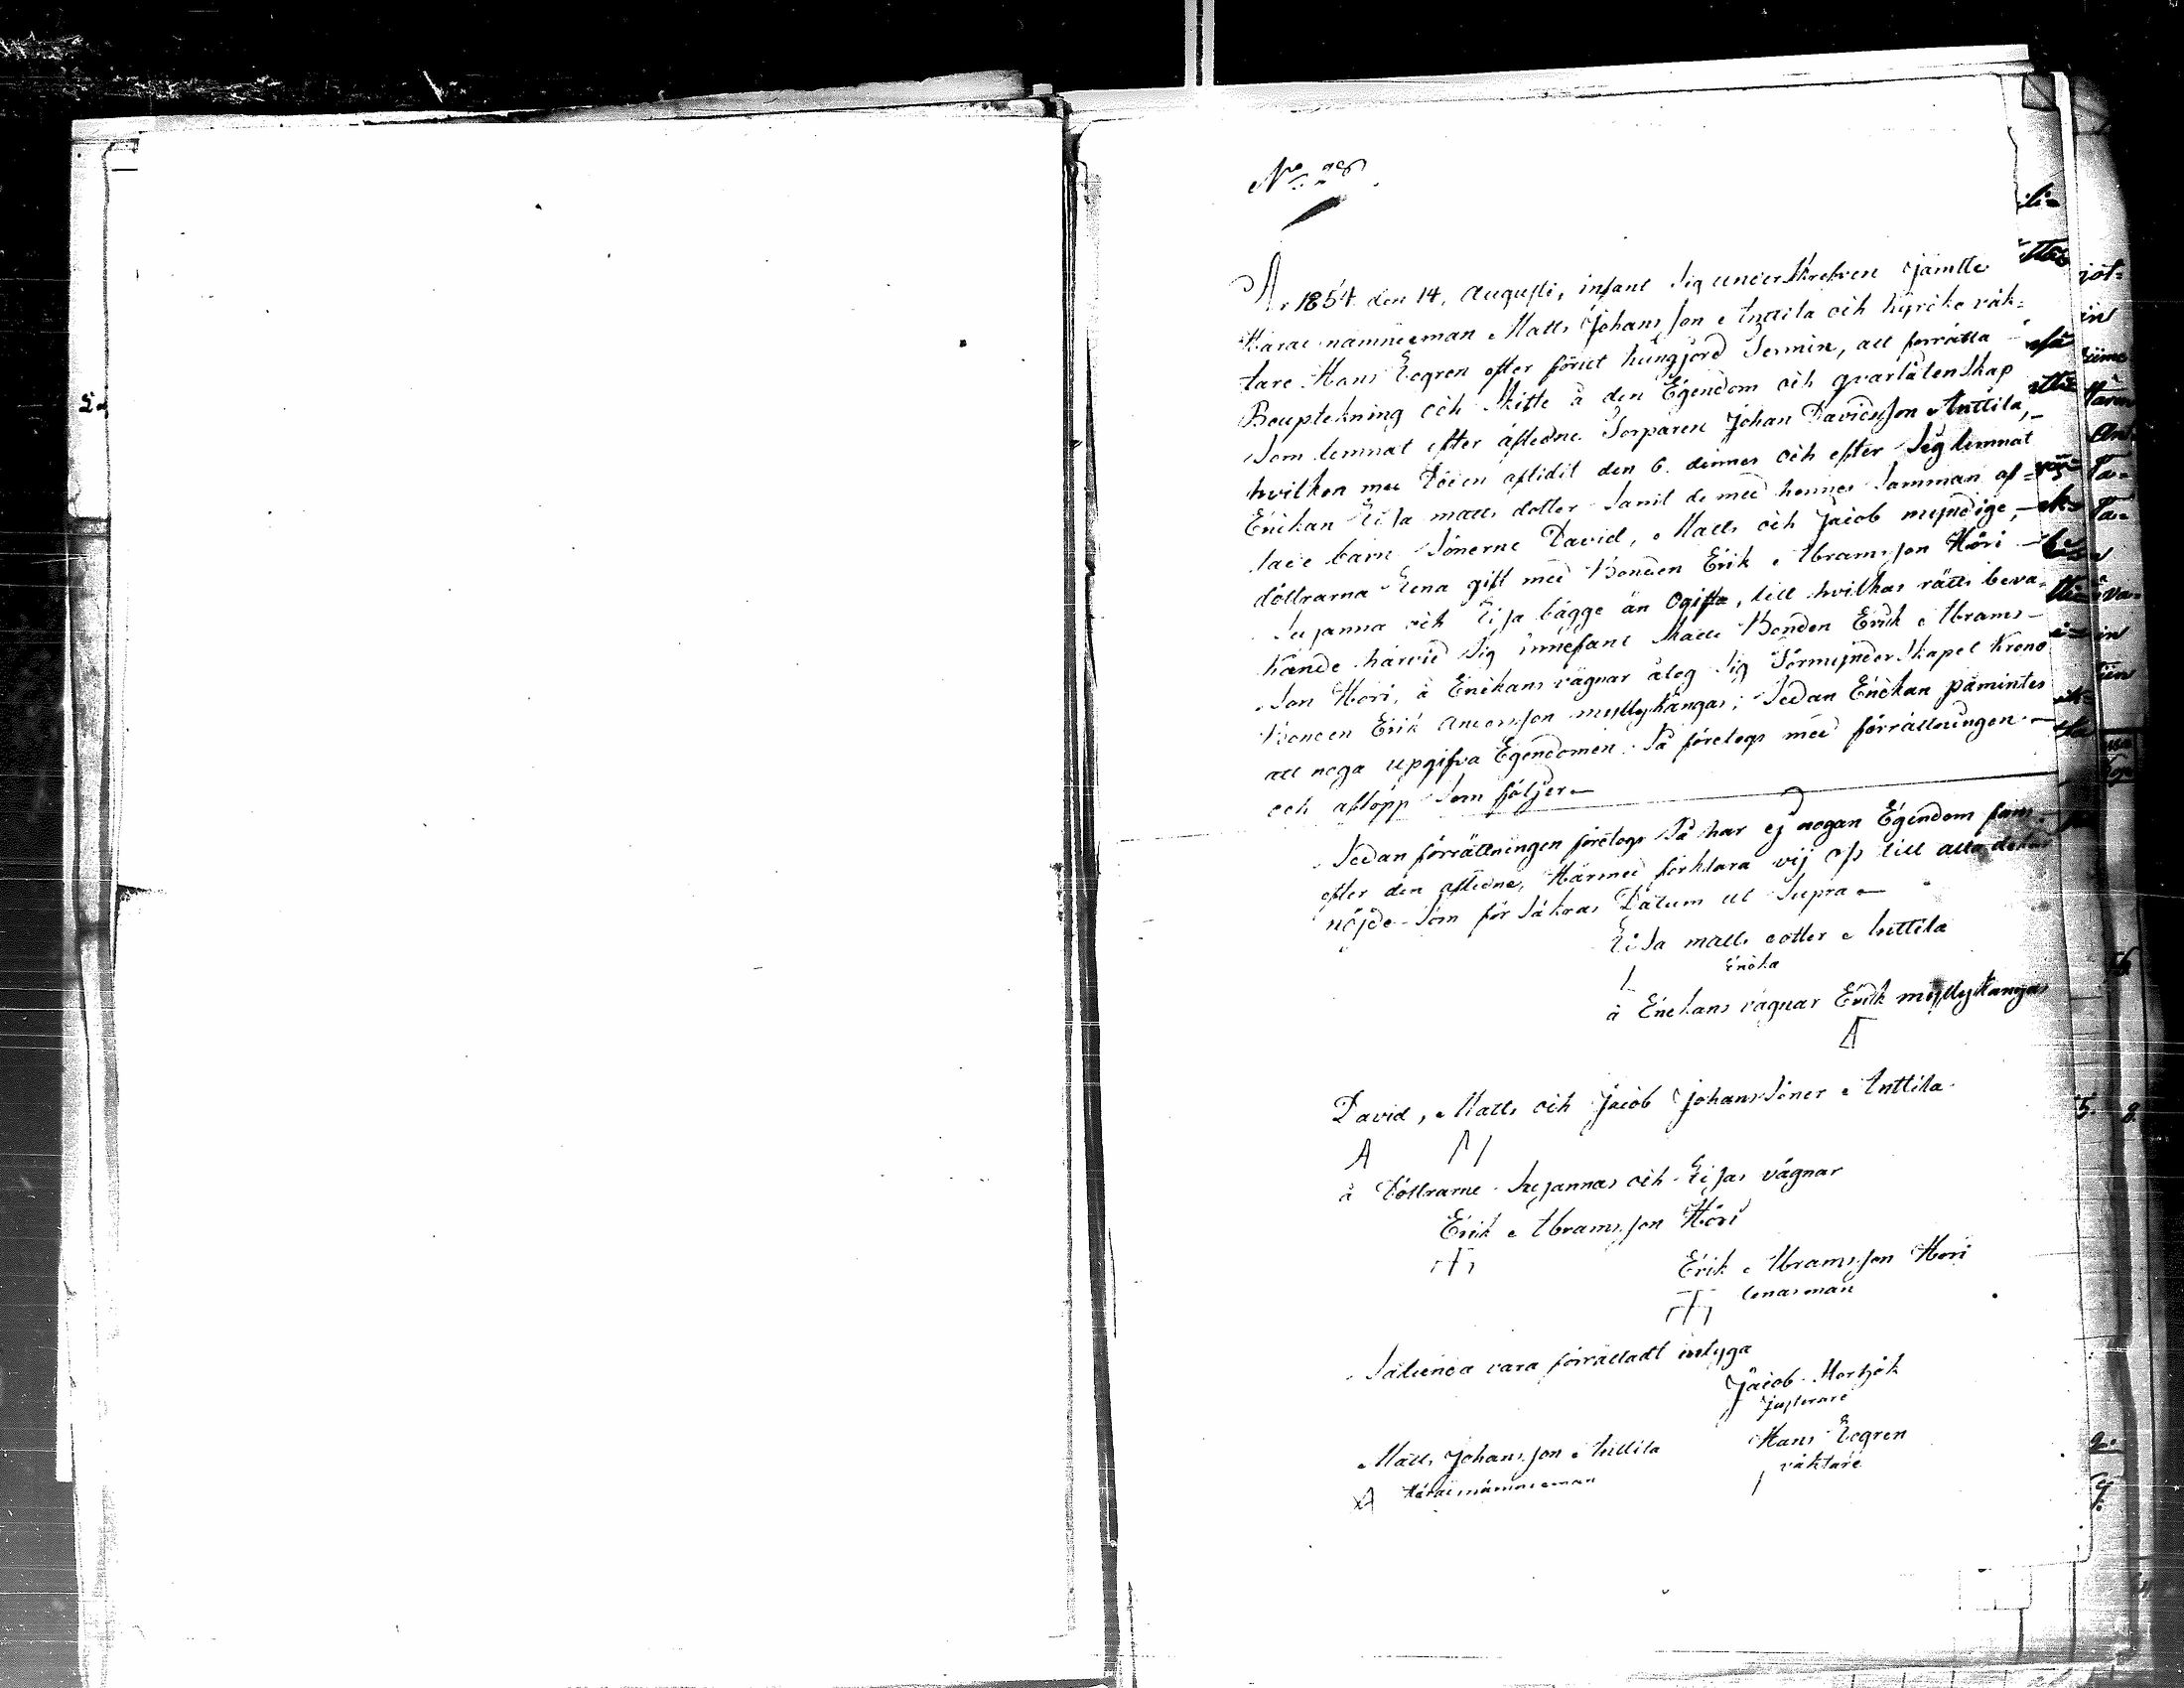 No 28
År 1854 den 14. Augusti, infant sig underskrefven jämte
Härads nämndeman Matts Johansson Anttila och kyrcko väk-
tare Hans Eegren efter förut kungjord Termin, att förrätta
Bouptekning och skifte å den Egendom och qvarlåtenskap
som lemnat efter afledne Torparen Johan Davidsson Anttila,
hvilken med Döden aflidit den 6. dennes och efter sig lemnat
Enckan Lisa matts dotter samt de med hennes samman af-
lade barn Sönerne David, Matts och Jacob myndige,
döttrarna Lena gift med Bonden Erik Abramsson Höri
Susanna och Lisa bägge än Ogifta, till hvilkas rätts beva-
kande härvid sig innefant Måu Bonden Erik Abrams-
son Höri, å Enckans vägnar åtog sig Förmynderskapet Krono
Bonden Erik Andersson myllykangas; Sedan Enckan påmintes
att noga upgifva Egendomen. Så företogs med förrättningen
och aflopp som följer
Sedan förrättningen företogs Så har ej nogan Egendom fans
efter den afledne, Härmed förklara vij oss till alla delar
nöjde som försäkras Datum ut Supra
Lisa matts dotter Anttila
Encka
å Enckans vägnar Erik myllykangas
David, Matts och Jacob Johanssöner Anttila
å Döttrarne Susannas och Lisas vägnar
Erik Abramsson Höri
Erik Abramsson Höri
Lenas man
Sålunda vara förrättadt intyga
Jacob
justerare
Matts Johansson Anttila
Häradsnämndeman
Hans Eegren
väktare